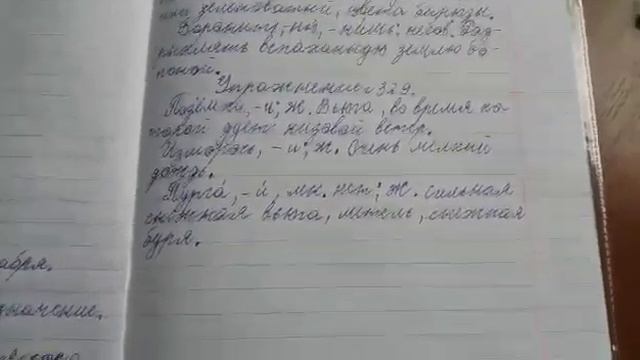 зеленоватый, цвета бирюзы.
Боронить, -ню, -нишь: несов. Раз-
рыхлять вспаханную землю бо-
роной.
Упражнение 329.
Позёмка, -и; ж. Вьюга, во время ко-
торой дует низовой ветер.
Изморось, -и; ж. Очень мелкий
дождь.
Пурга́, -и́, мн. нет; ж. сильная
снежная вьюга, метель, снежная
буря.
абря.
значение.